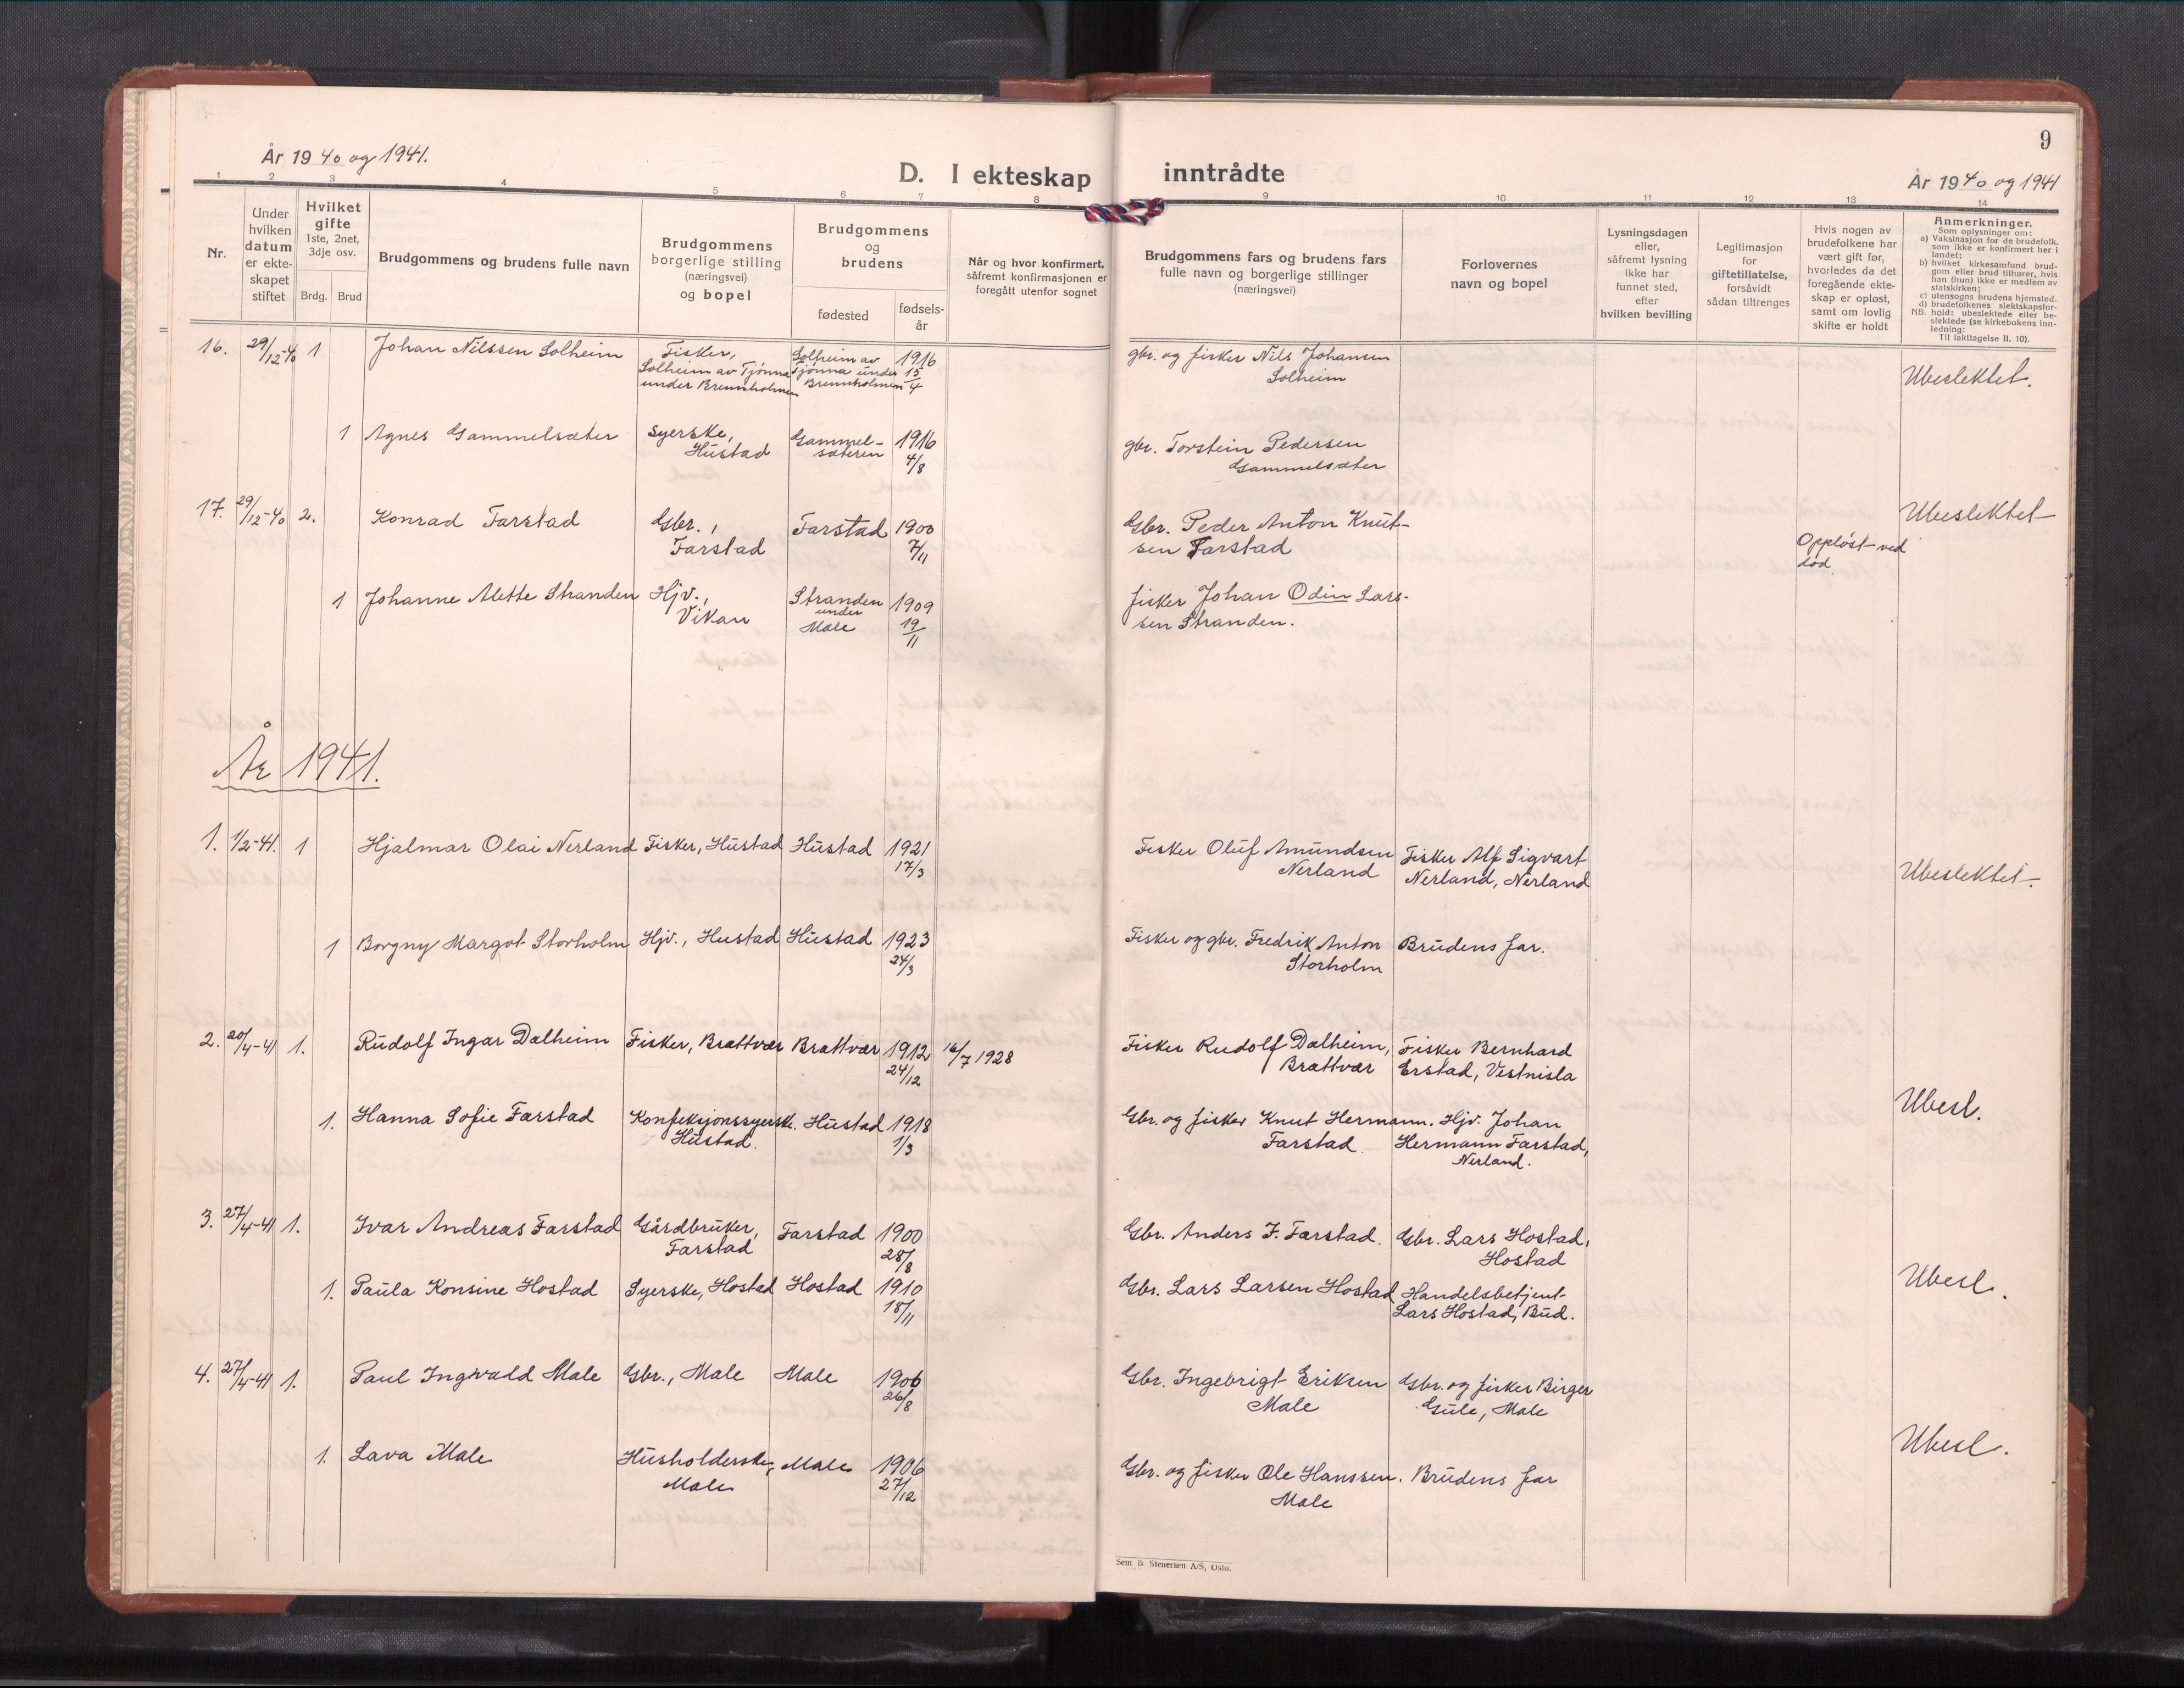 År 1940 og 1941.
D. I ekteskap inntrådte
9
År 1940 og 1941
1 2 3 4 5 6 7 8 9 10 11 12 13 14
Nr.
Under
hvilken
datum
er ekte-
skapet
stiftet
Hvilket
gifte
1ste, 2net,
3dje osv.
Brdg. Brud
Brudgommens og brudens fulle navn
Brudgommens
borgerlige stilling
(næringsvei)
og bopel
Brudgommens
og
brudens
fødested
fødsels-
år
Når og hvor konfirmert,
såfremt konfirmasjonen er
foregått utenfor sognet
Brudgommens fars og brudens fars
fulle navn og borgerlige stillinger
(næringsvei)
Forlovernes
navn og bopel
Lysningsdagen
eller,
såfremt lysning
ikke har
funnet sted,
efter
hvilken bevilling
Legitimasjon
for
giftetillatelse,
forsåvidt
sådan tiltrenges
Hvis nogen av
brudefolkene har
vært gift før,
hvorledes da det
foregående ekte-
skap er opløst,
samt om lovlig
skifte er holdt
Anmerkninger.
Som oplysninger om:
a) Vaksinasjon for de brudefolk,
som ikke er konfirmert her i
landet;
b) hvilket kirkesamfund brud-
gom eller brud tilhører, hvis
han (hun) ikke er medlem av
statskirken;
c) utensogns brudens hjemsted.
d) brudefolkenes slektskapsfor-
NB. hold: ubeslektede eller be-
slektede (se kirkebokens inn-
ledning:
Til iakttagelse II. 10).
16. 29/12-40 1 Johan Nilssen Solheim Fisker, Solheim av 1916 gbr. og fisker Nils Johansen
Solheim av Tjønna Tjønna under 15/4 Solheim Ubeslektet.
under Bremnholmen Bremnholmen
1 Agnes Gammelsæter syerske, Gammel- 1916 gbr. Torstein Pedersen
Hustad sæteren 4/8 Gammelsæter
17. 29/12-40 2. Konrad Farstad Gbr., Farstad 1900 Gbr. Peder Anton Knut- Ubeslektet
Farstad 7/11 sen Farstad Oppløst ved
død.
1 Johanne Alette Stranden Hjv., Stranden 1909 fisker Johan Odin Lars-
Vikan under 19/11 sen Stranden.
Male
År 1941.
1. 1/2-41. 1 Hjalmar Olai Nerland Fisker, Hustad Hustad 1921 Fisker Oluf Amundsen Fisker Alf Sigvart
17/3 Nerland Nerland, Nerland Ubeslektet.
1 Borgny Margot Storholm Hjv., Hustad Hustad 1923 Fisker og gbr. Fredrik Anton Brudens far.
24/3 Storholm
2. 20/4-41 1. Rudolf Ingar Dalheim Fisker, Brattvær Brattvær 1912 16/7 1928 Fisker Rudolf Dalheim, Fisker Bernhard
24/12 Brattvær Erstad, Vestnisla
1. Hanna Sofie Farstad Konfeksjonssyerske. Hustad 1918 Gbr. og fisker Knut Hermann. Hjv. Johan Ubesl.
Hustad. 1/3 Farstad. Hermann Farstad,
Nerland.
3. 27/4-41 1. Ivar Andreas Farstad Gårdbruker, Farstad 1900 Gbr. Anders J. Farstad. Gbr. Lars Hostad,
Farstad 28/8 Hostad
1. Paula Konsine Hostad Syerske, Hostad Hostad 1910 Gbr. Lars Larsen Hostad Handelsbetjent Ubesl.
18/11 Lars Hostad, Bud.
4. 27/4-41 1. Paul Ingvald Male Gbr., Male Male 1906 Gbr. Ingebrigt Eriksen Gbr. og fisker Birger
26/8 Male Gule, Male
1. Lava Male Husholderske, Male 1906 Gbr. og fisker Ole Hanssen. Brudens far Ubesl.
Male 27/12 Male
Sem & Stenersen A/S, Oslo.